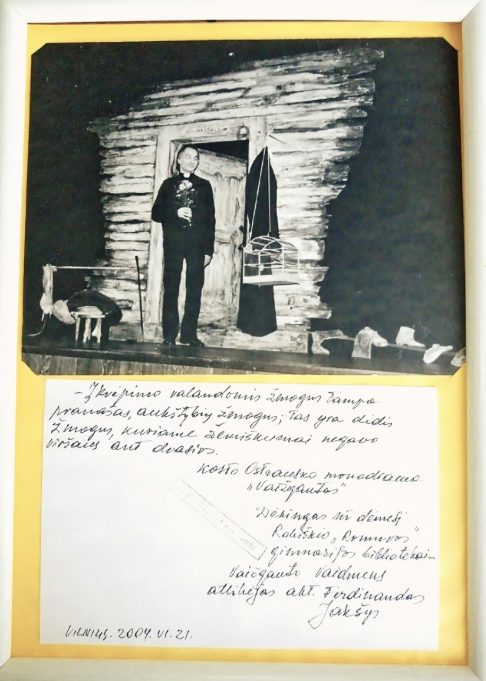 – Įkvėpimo valandomis žmogus tampa
pranašas, aukštybių žmogus; tas yra didis
žmogus, kuriame žemiškumai negavo
viršaus ant dvasios.
Kosto Ostrausko monodrama
„Vaižgantas"
Dėkingas už dėmesį
Rokiškio „Romuvos"
gimnazijos bibliotekai –
Vaižganto vaidmens
atlikėjas akt. Ferdinandas
Jakšys
VILNIUS. 2004. VI. 21.